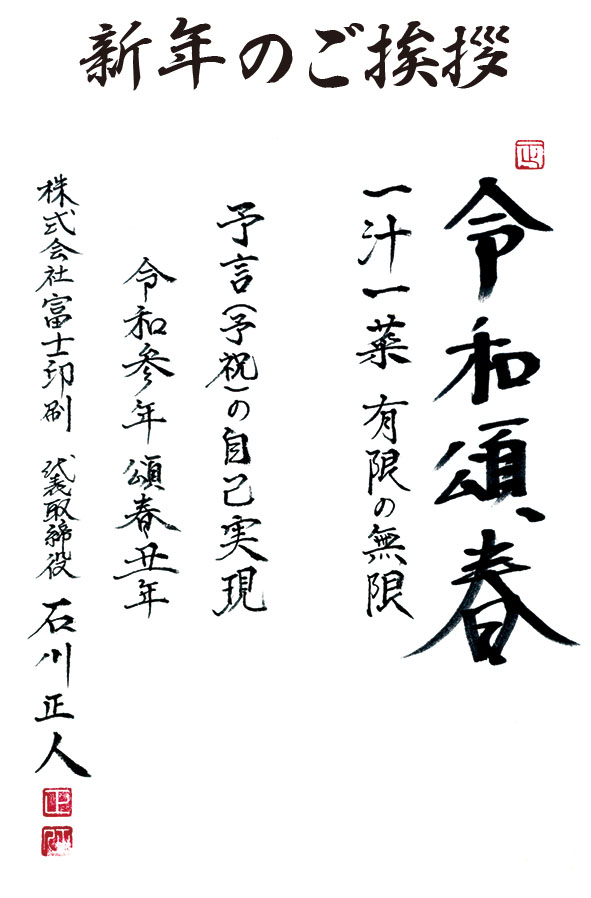 新年のご挨拶
令和頌春
一汁一菜 有限の無限
予言(予祝)の自己実現
令和参年 頌春丑年
株式会社富士印刷 代表取締役 石川正人